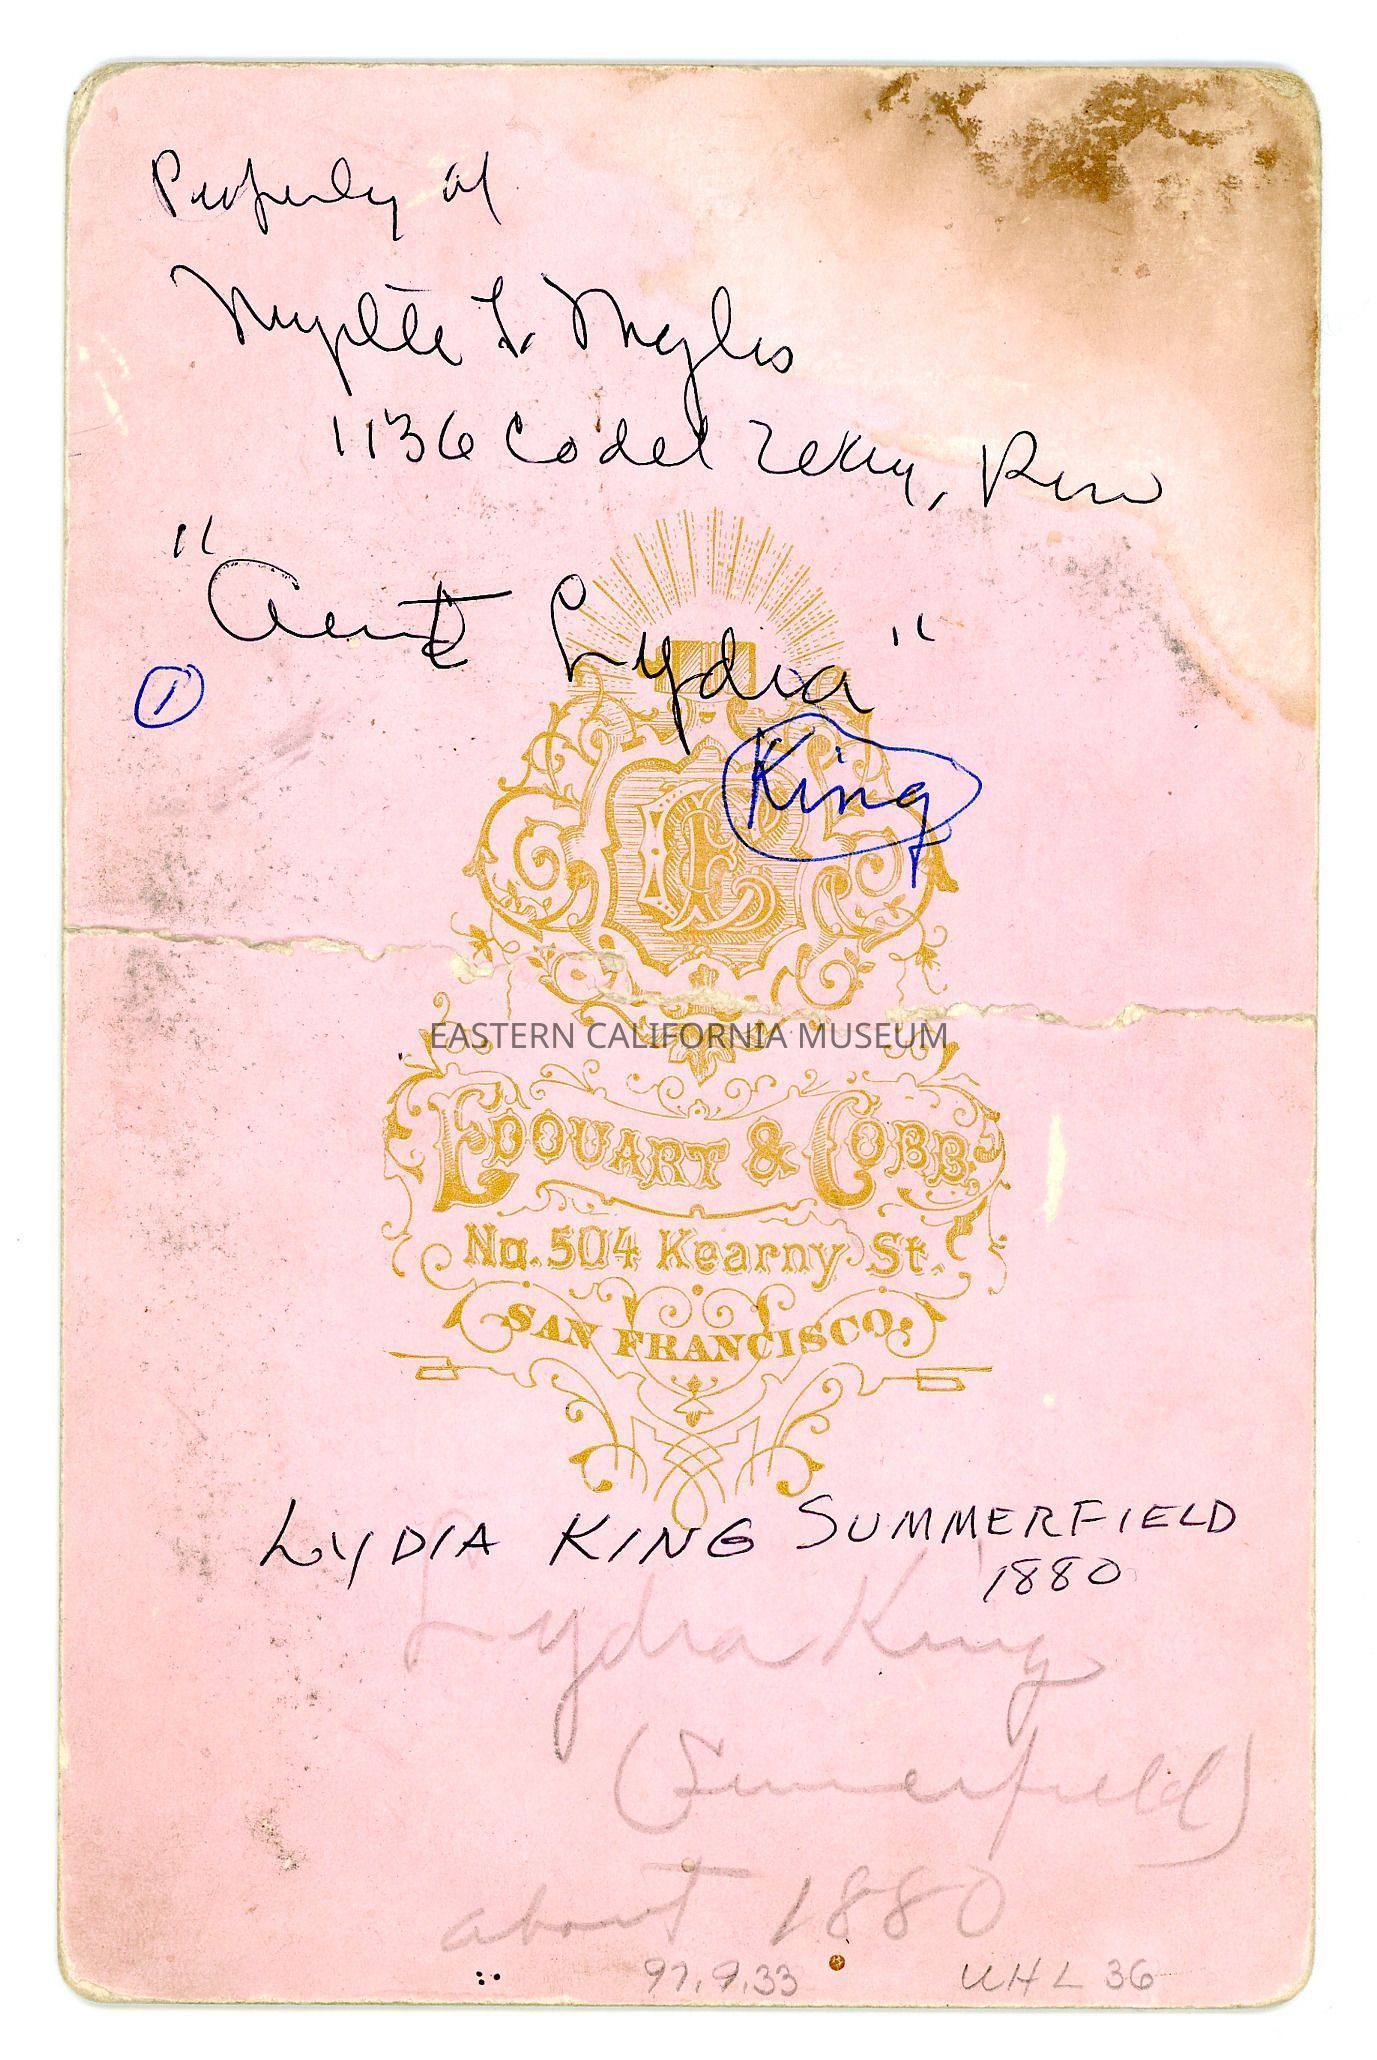 Property of
Myrtle T. Myles
1136 Codel Way, Reno
"Aunt Lydia"
①
King
EC
EASTERN CALIFORNIA MUSEUM
EDOUART & COBB,
No. 504 Kearny St.
SAN FRANCISCO.
LYDIA KING SUMMERFIELD
1880
Lydia King
(Summerfield)
about 1880
97.9.33
UHL 36